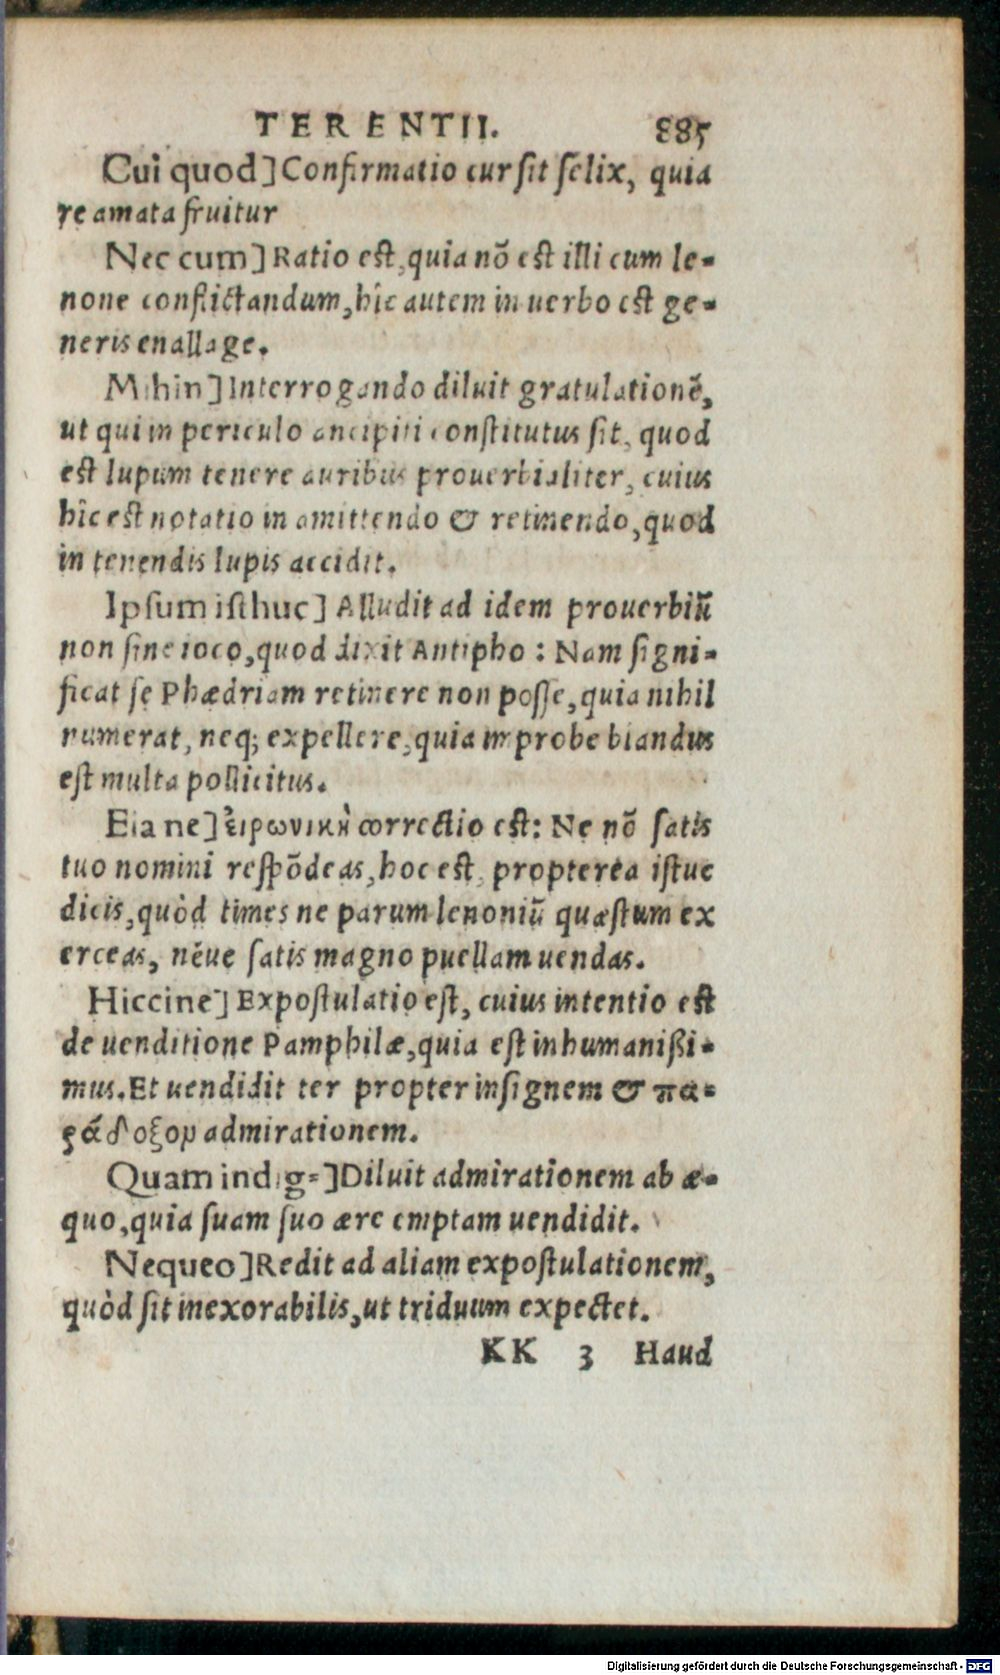 TERENTII. 885
Cui quod] Confirmatio cur sit felix, quia
re amata fruitur
Nec cum] Ratio est, quia nõ est illi cum le-
none conflictandum, hîc autem in uerbo est ge-
neris enallage.
Mihin] Interrogando diluit gratulationẽ,
ut qui in periculo ancipiti constitutus sit, quod
est lupum tenere auribus prouerbialiter, cuius
hîc est notatio in amittendo & retinendo, quod
in tenendis lupis accidit.
Ipsum isthuc] Alludit ad idem prouerbiũ
non sine ioco, quod dixit Antipho: Nam signi-
ficat se Phædriam retinere non posse, quia nihil
numerat, neq; expellere, quia improbe blandus
est multa pollicitus.
Eia ne] εἰρωνικὴ correctio est: Ne nõ satis
tuo nomini respõdeas, hoc est, propterea istuc
dicis, quòd times ne parum lenoniũ quæstum ex
erceas, néue satis magno puellam uendas.
Hiccine] Expostulatio est, cuius intentio est
de uenditione Pamphilæ, quia est inhumanißi-
mus. Et uendidit ter propter insignem & πα-
ράδοξον admirationem.
Quam indig=] Diluit admirationem ab æ-
quo, quia suam suo ære emptam uendidit.
Nequeo] Redit ad aliam expostulationem,
quòd sit inexorabilis, ut triduum expectet.
KK 3 Haud
Digitalisierung gefördert durch die Deutsche Forschungsgemeinschaft - DFG